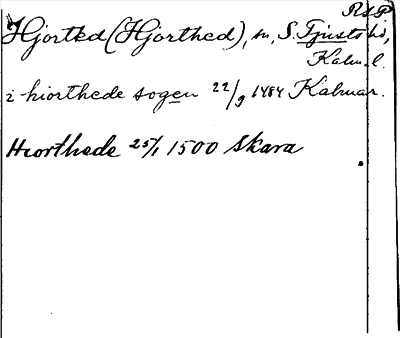 RAP
Hjorted (Hjorthed), sn, S. Tjusts hd,
Kalm. l.
i hiorthede sogen 22/9 1484 Kalmar.
Hiorthede 25/1 1500 Skara